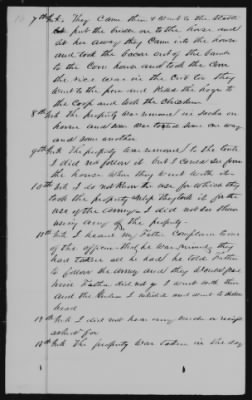 7th Int. They came there & went to the stable
put the bridle on to the horse and
led her away they came into the house
and took the bacon out of the barrels
to the Corn house and took the Corn
the rice was in the Crib too they
went to the pen and killed the hogs
to the Coop and took the chickens
8th Int The property was removed in sacks on
horse and some was toted some one way
and some another
9th Int The property was removed to the
I did not follow it but I could see from
the house when they went with it
10th Int I do not know the use for which they
took the property only they took it for the
use of the army I did not see them
using any of the property
11th Int I heard my Father Complain to some
of the officers that he was ruined, they
had taken all he had he told Father
to follow the army and they would pay
him Father did not go I went with them
and the
head
12th Int I did not hear any
asked for
13th Int The property was taken in the day